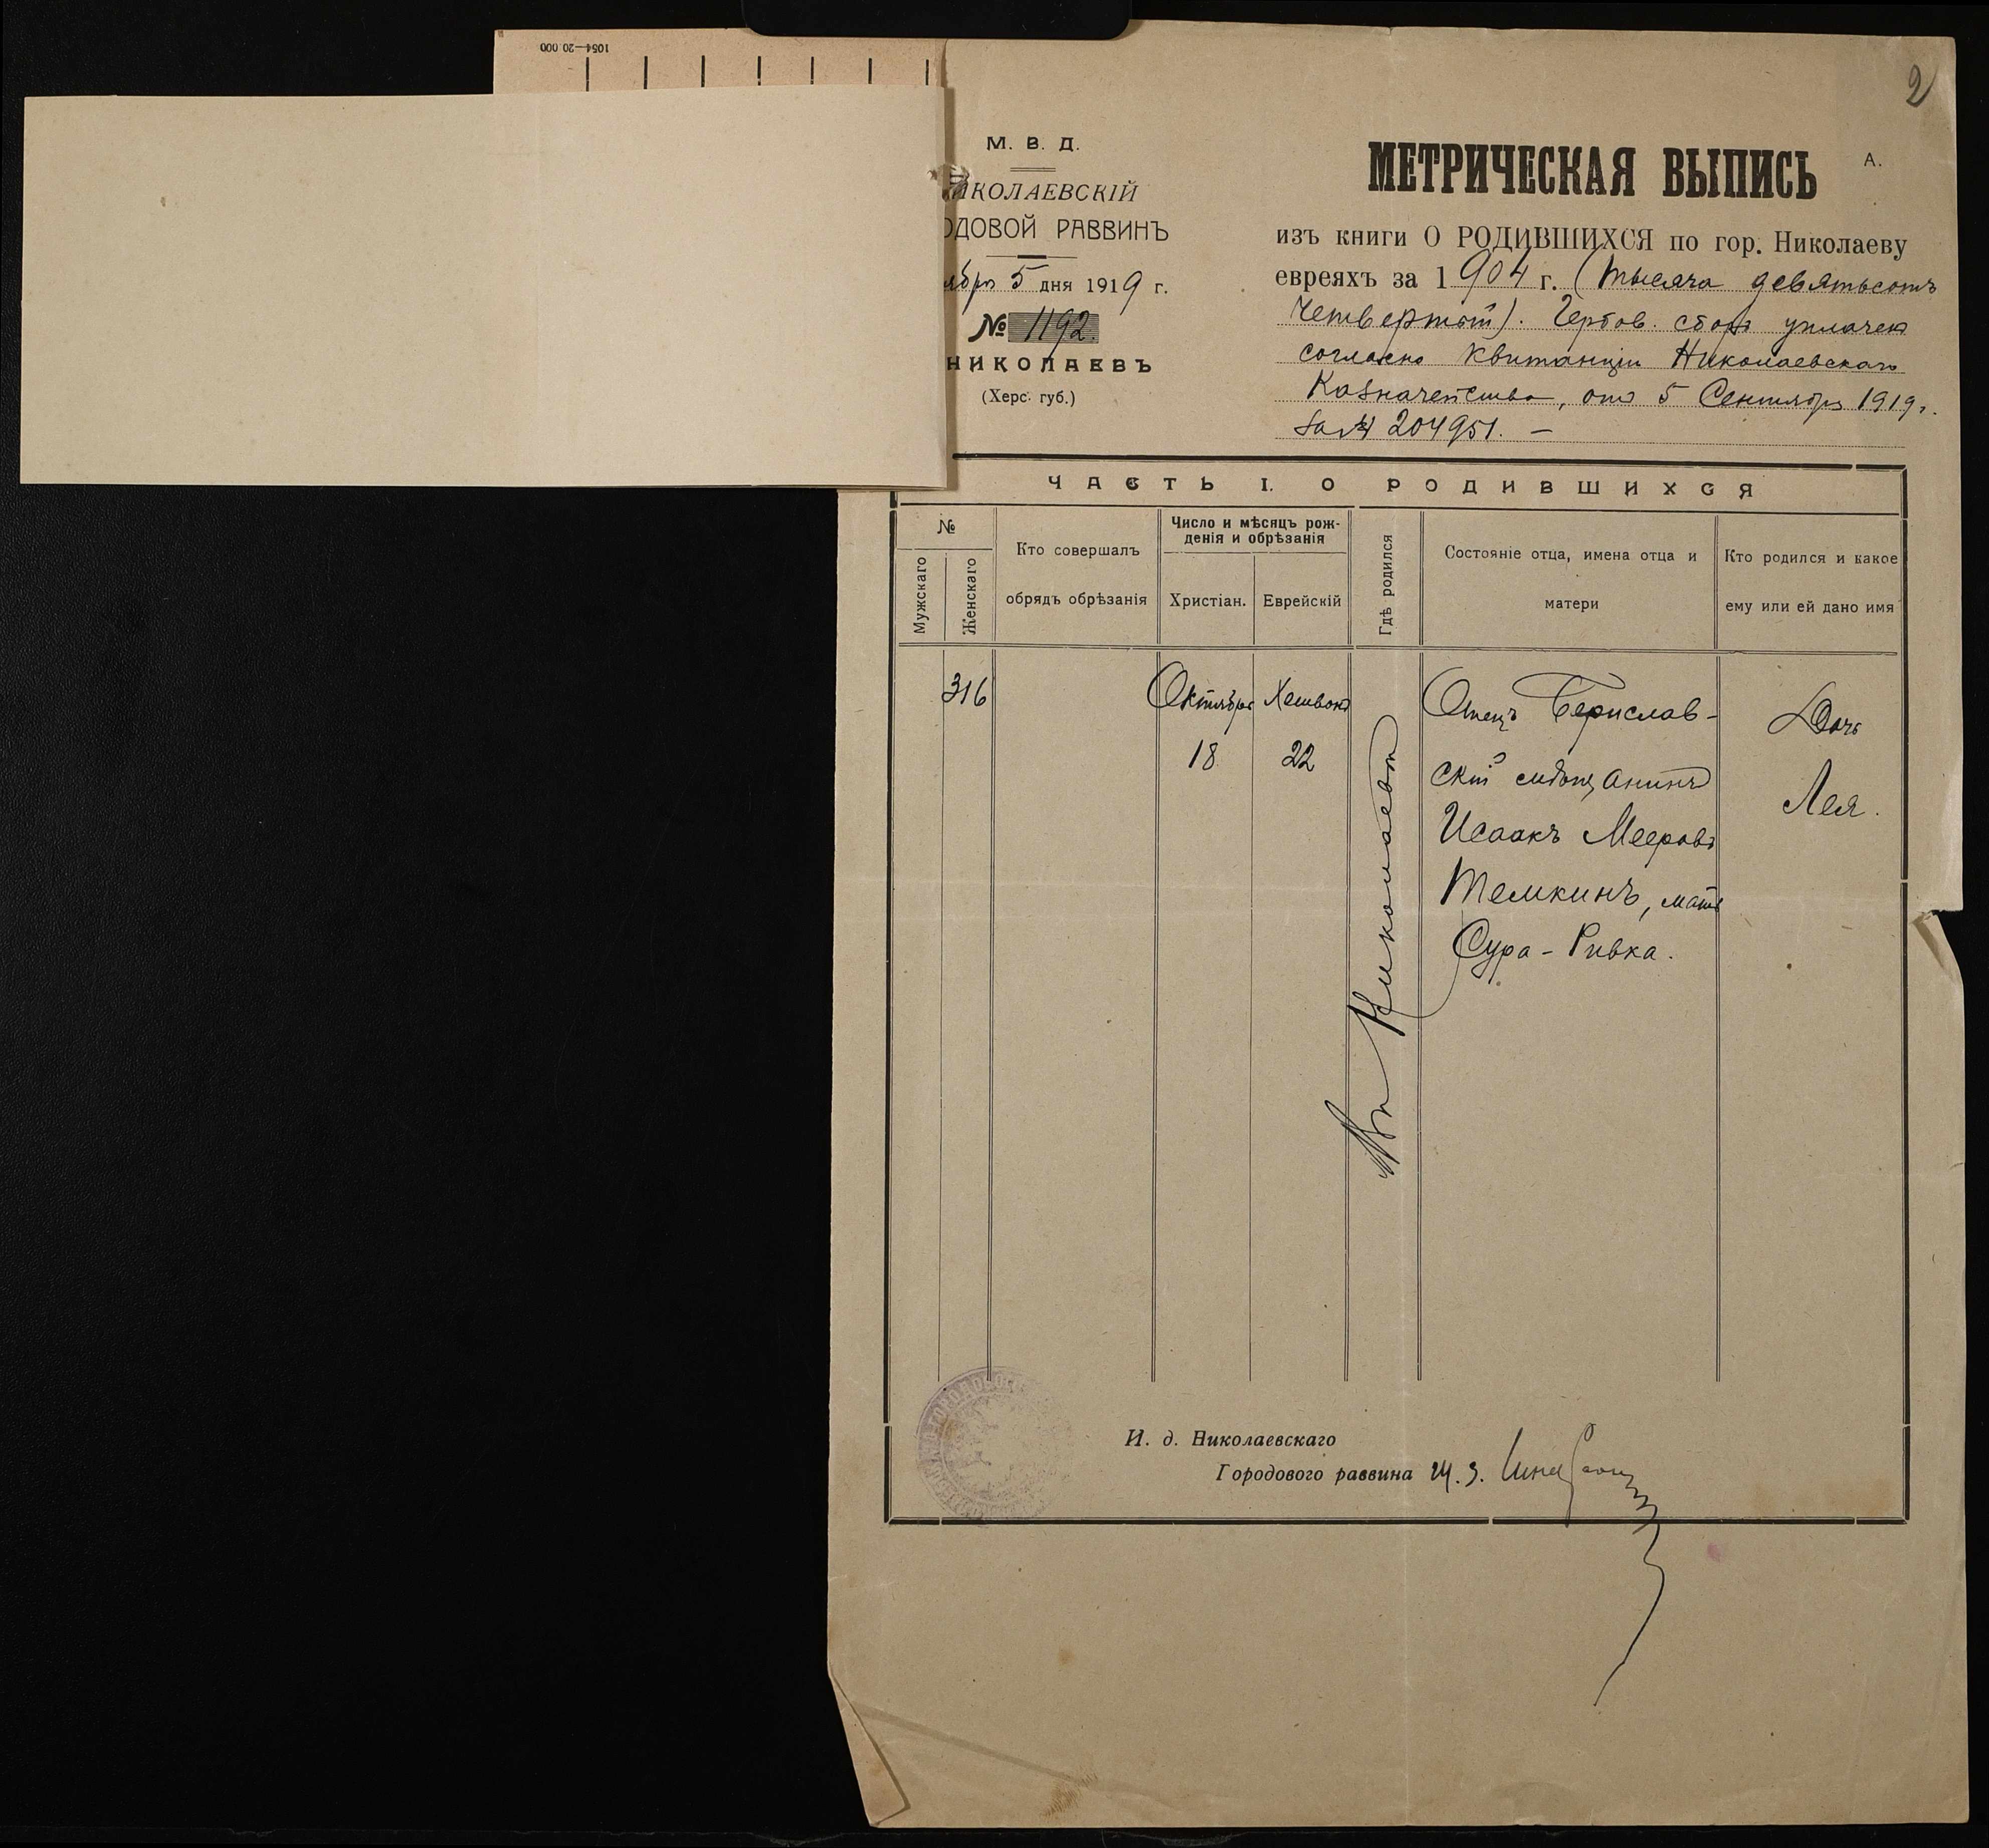 1054—20.000
2
М. В. Д.
ИКОЛАЕВСКІЙ
ОДОВОЙ РАВВИНЪ
ября 5 дня 1919 г.
№ 1192.
НИКОЛАЕВЪ
(Херс. губ.)
МЕТРИЧЕСКАЯ ВЫПИСЬ А.
изъ книги О РОДИВШИХСЯ по гор. Николаеву
евреяхъ за 1904 г. (тысяча девятьсотъ
четвертый). Гербов. сборъ уплаченъ
согласно квитанціи Николаевскаго
Казначейства, отъ 5 Сентября 1919 г.
за № 204951. —
ЧАСТЬ I. О РОДИВШИХСЯ
№
Мужскаго
Женскаго
Кто совершалъ
обрядъ обрѣзанія
Число и мѣсяцъ рож-
денія и обрѣзанія
Христіан.
Еврейскій
Гдѣ родился
Состояніе отца, имена отца и
матери
Кто родился и какое
ему или ей дано имя
316
Октября
18
Хешвонъ
22
Въ Николаевѣ
Отецъ Берислав-
скій мѣщанинъ
Исаакъ Мееровъ
Темкинъ, мать
Сура-Ривка.
Дочь
Лея.
И. д. Николаевскаго
Городового раввина